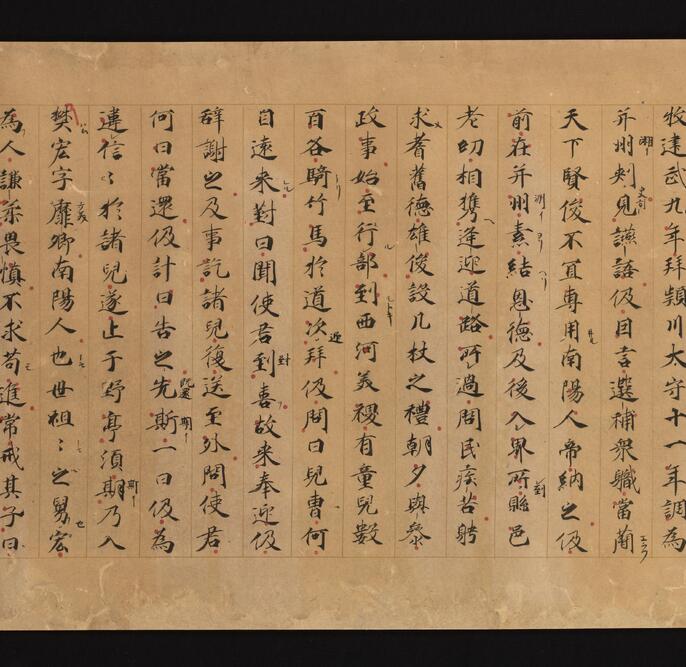 牧建武九年拜潁川太守十一年調為
并州刺見讌語伋因言選補衆職當蕳
天下賢俊不冝專用南陽人帝納之伋
前在并州素結恩德及後入界所縣邑
老幼相携逢迎道路所過問民疾苦聘
求耆舊德雄俊設几杖之禮朝夕與參
政事始至行部到西河美稷有童兒數
百各騎竹馬於道次拜伋問曰兒曹何
自遠来對曰聞使君到喜故来奉迎伋
辞謝之及事訖諸兒復送至外問使君
何日當還伋計日告之先斯一日伋為
違信々於諸兒遂止于野亭湏期乃入
樊宏字靡卿南陽人也世祖々之舅宏
為人謙柔畏慎不求苟進常戒其子曰